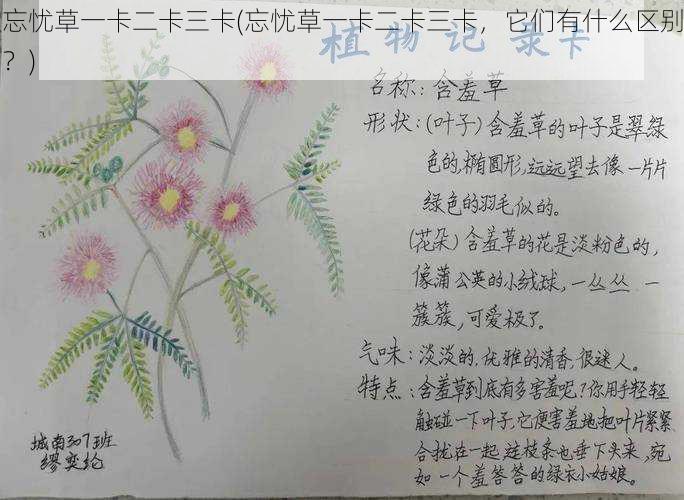 忘忧草一卡二卡三卡(忘忧草一卡二卡三卡，它们有什么区别
？)
植物记录卡
名称：含羞草
形状：(叶子)含羞草的叶子是翠绿
色的,椭圆形,远远望去像一片片
绿色的羽毛似的。
(花朵)含羞草的花是淡粉色的，
像蒲公英的小绒球，一丛丛一
簇簇，可爱极了。
气味：淡淡的，优雅的清香，很迷人。
特点：含羞草到底有多害羞呢？你用手轻轻
触碰一下叶子,它便害羞地把叶片紧紧
合拢在一起,连枝条也垂下头来，宛
如一个羞答答的绿衣小姑娘。
城南307班
缪奕纶